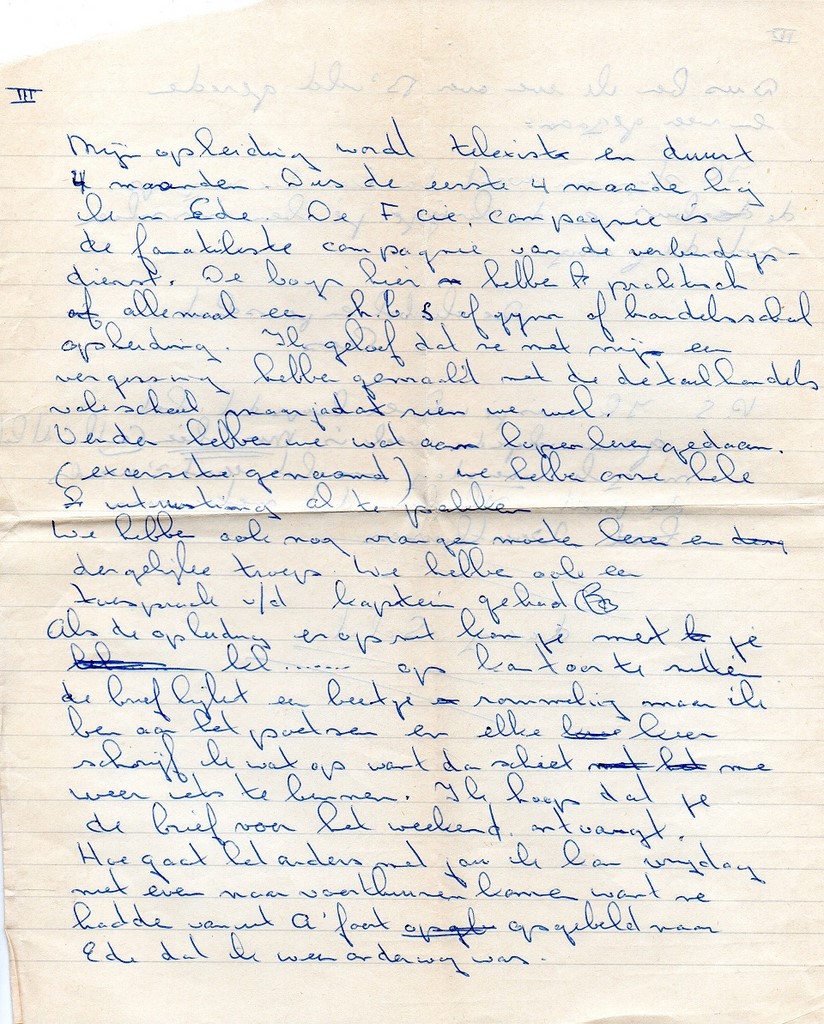 III
Mijn opleiding wordt telexist en duurt
4 maanden. Dus de eerste 4 maande lig
ik in Ede. De F cie. compagnie is
de fanatikste compagnie van de verbindings-
dienst. De boys hier hebbe praktisch
allemaal een h.b.s of gym of handelsschool
opleiding. Ik geloof dat ze met mij een
vergissing hebbe gemaakt met de detailhandels
vakschool maar ja dat zien we wel.
Verder hebbe we wat aan lopen leren gedaan.
(excersitie genaamd). we hebbe onze hele
uitrusting al te pakken
We hebbe ook nog rangen moete leren en
dergelijke troep. We hebbe ook een
toespraak v/d kaptein gehad
Als de opleiding er op zit kom je met je
kl....... op kantoor te zitten
de brief lijkt een beetje rommelig maar ik
ben aan het poetsen en elke keer
schrijf ik wat op want dan schiet me
weer iets te binnen. Ik hoop dat je
de brief voor het weekend ontvangt.
Hoe gaat het anders met jou ik kon vrijdag
niet even naar voorthuizen komen want ze
hadde vanuit A'foort opgebeld naar
Ede dat ik weer onderweg was.